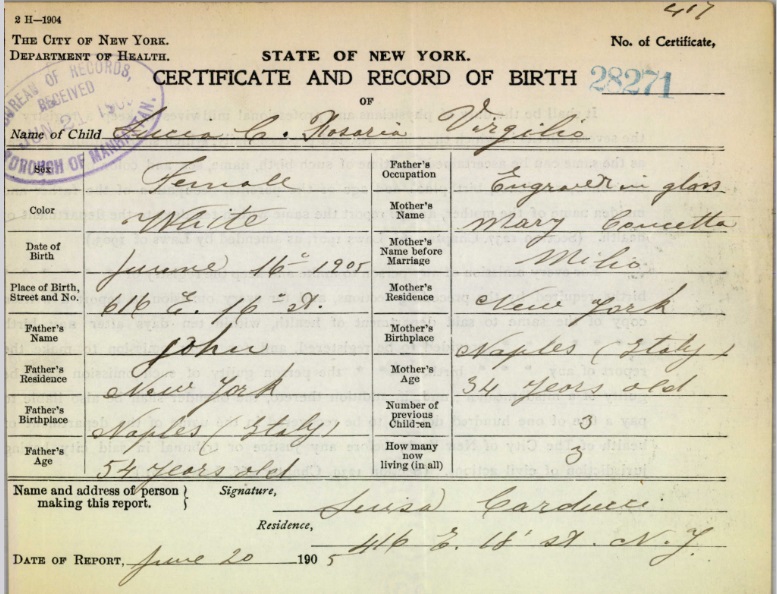 417
2 H—1904
THE CITY OF NEW YORK.
DEPARTMENT OF HEALTH.
No. of Certificate,
STATE OF NEW YORK.
CERTIFICATE AND RECORD OF BIRTH
28271
OF
BUREAU OF RECORDS,
RECEIVED
BOROUGH OF MANHATTAN.
Name of Child Lucia C. Rosaria Virgilio
Sex Female
Father's Occupation Engraver in glass
Color White
Mother's Name Mary Concetta
Date of Birth Junne 16 1905
Mother's Name before Marriage Milio
Place of Birth, Street and No. 616 E. 16 St.
Mother's Residence New York
Father's Name John
Mother's Birthplace Naples (Italy)
Father's Residence New York
Mother's Age 34 years old
Father's Birthplace Naples Italy
Number of previous Children 3
Father's Age 54 years old
How many now living (in all) 3
Name and address of person making this report. Signature, Luisa Carducci
Residence, 416 E. 18 st. N. Y.
DATE OF REPORT, June 20 1905